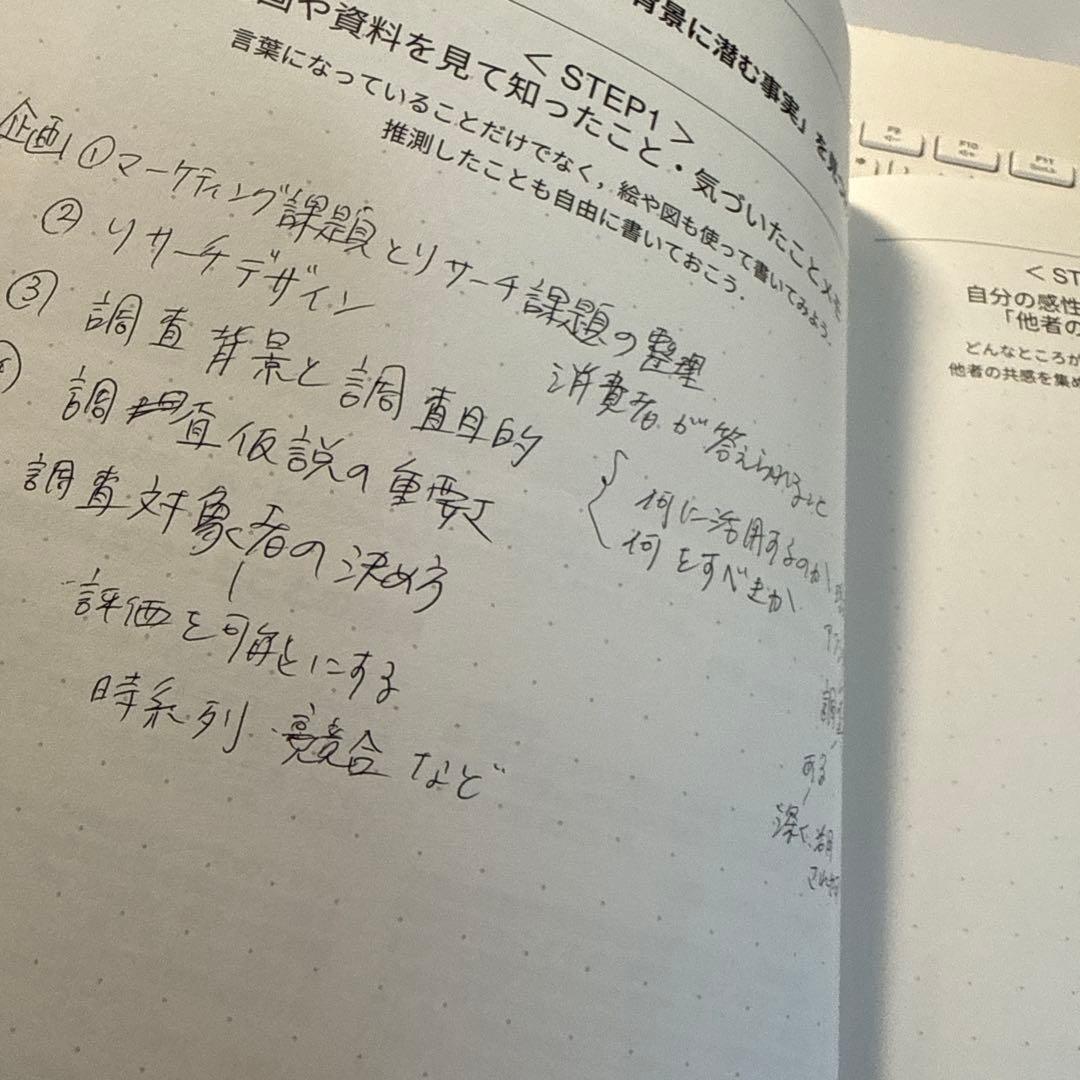 背景に潜む事実」を
< STEP1 >
や資料を見て知ったこと・気づいたことメモ
言葉になっていることだけでなく，絵や図も使って書いてみよう．
推測したことも自由に書いておこう．
企画 ① マーケティング課題とリサーチ課題の整理
② リサーチデザイン
③ 調査背景と調査目的
調査仮説の重要
調査対象者の決め方
評価を可能とにする
時系列 競合 など
消費者が答えられること
何に活用するのか
何をすべきか
ある
深く
F10
F11
< ST
自分の感性
「他者の
どんなところが
他者の共感を集め